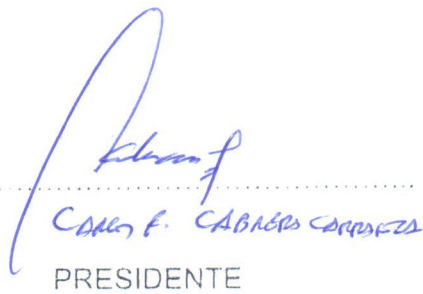 CARLOS F. CABRERA CARRANZA
PRESIDENTE